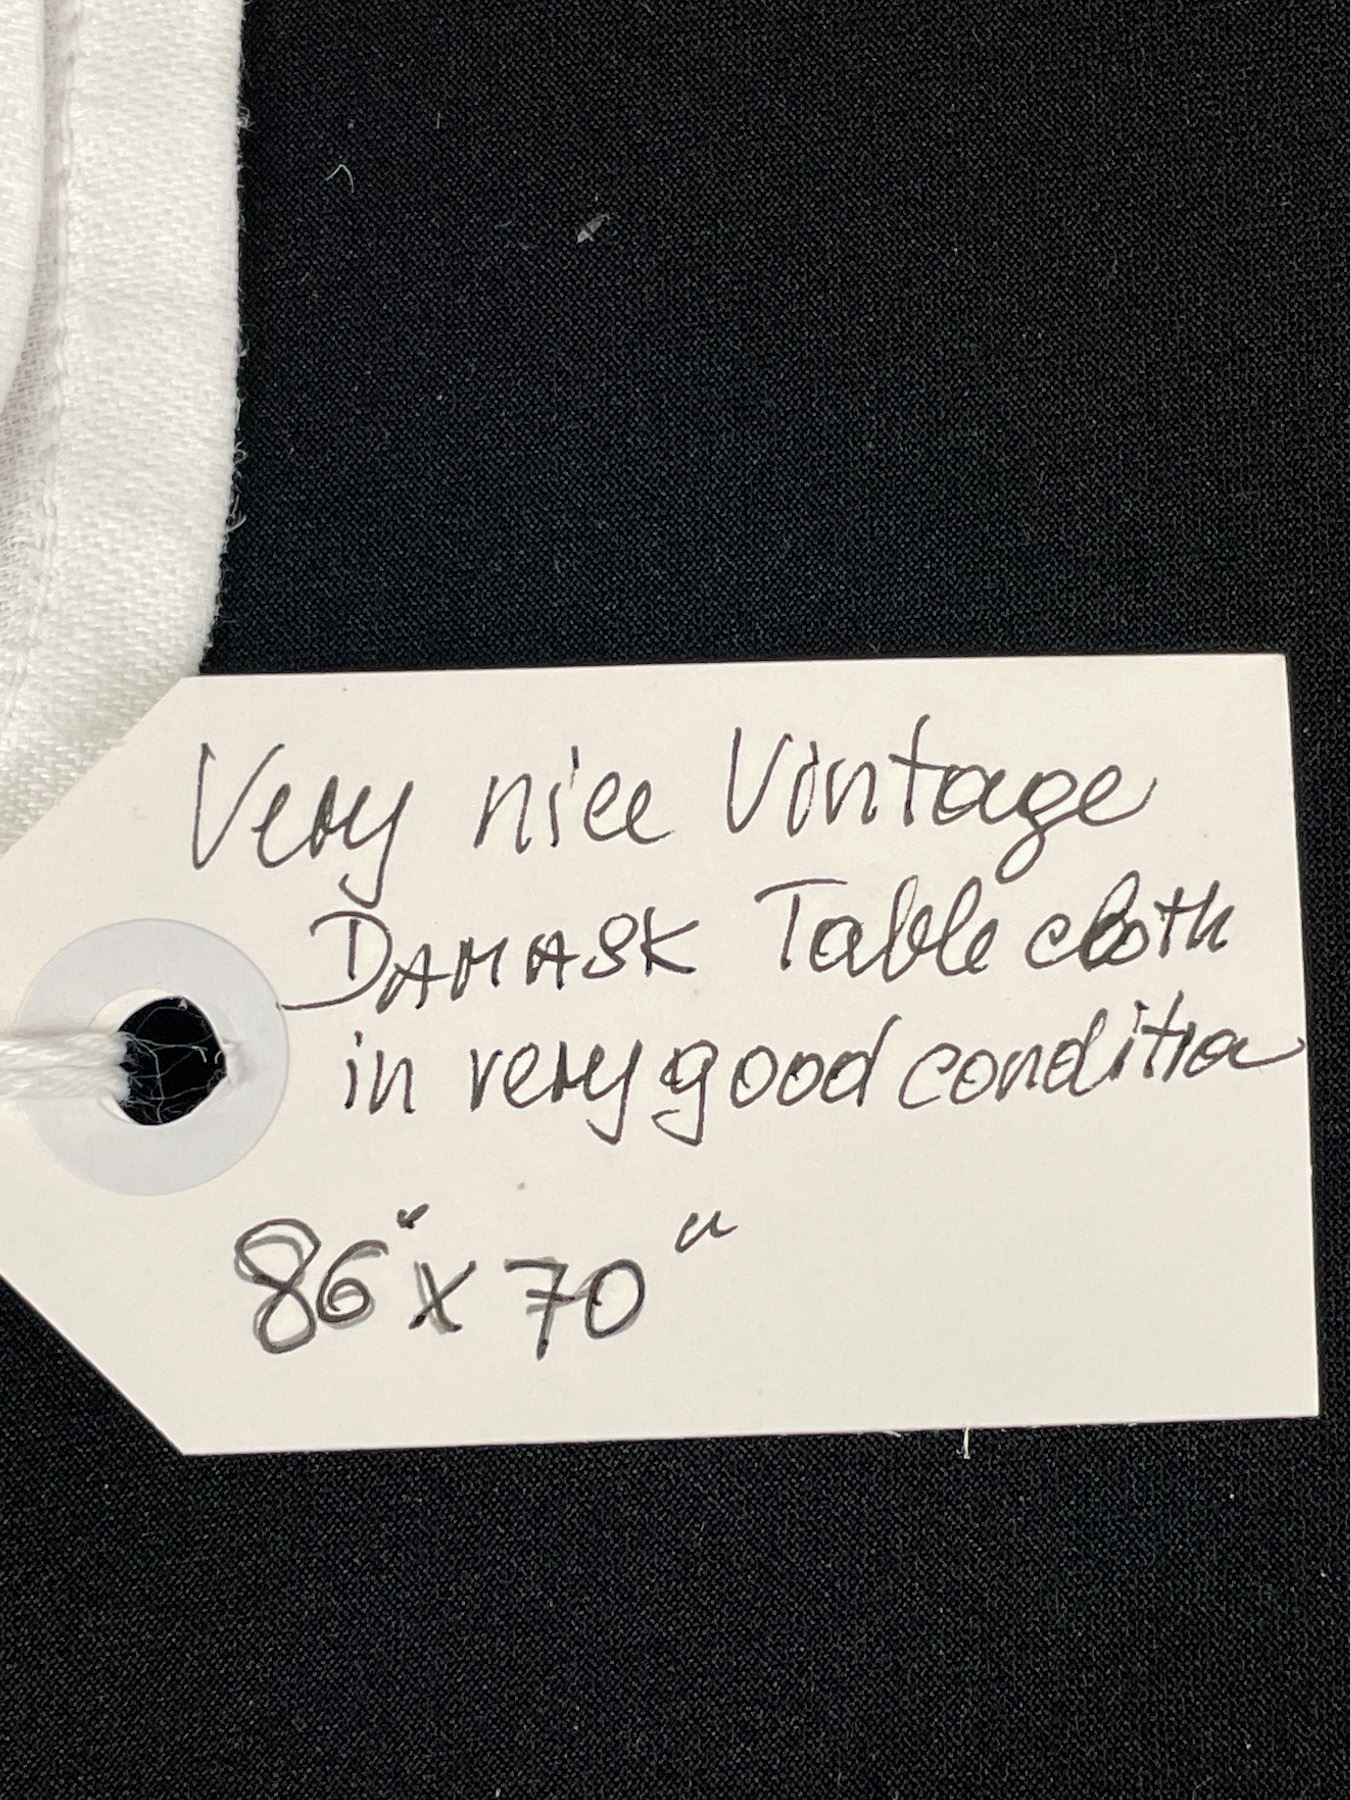 Very nice Vintage
DAMASK Table cloth
in very good condition
86" x 70"